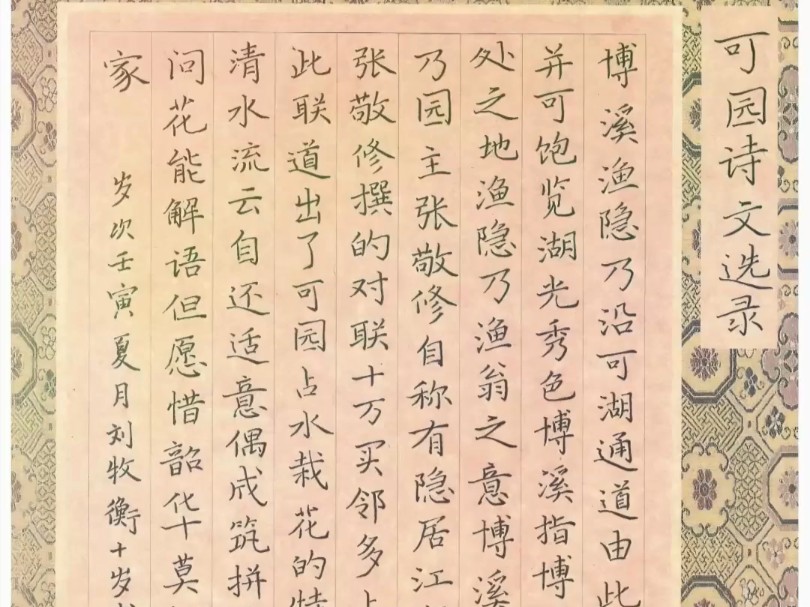 可园诗文选录
博溪渔隐乃沿可湖通道由此
并可饱览湖光秀色博溪指博
处之地渔隐乃渔翁之意博溪
乃园主张敬修自称有隐居江
张敬修撰的对联十万买邻多
此联道出了可园占水栽花的
清水流云自还适意偶成筑拼
问花能解语但愿惜韶华莫
家
岁次壬寅夏月刘牧衡十岁